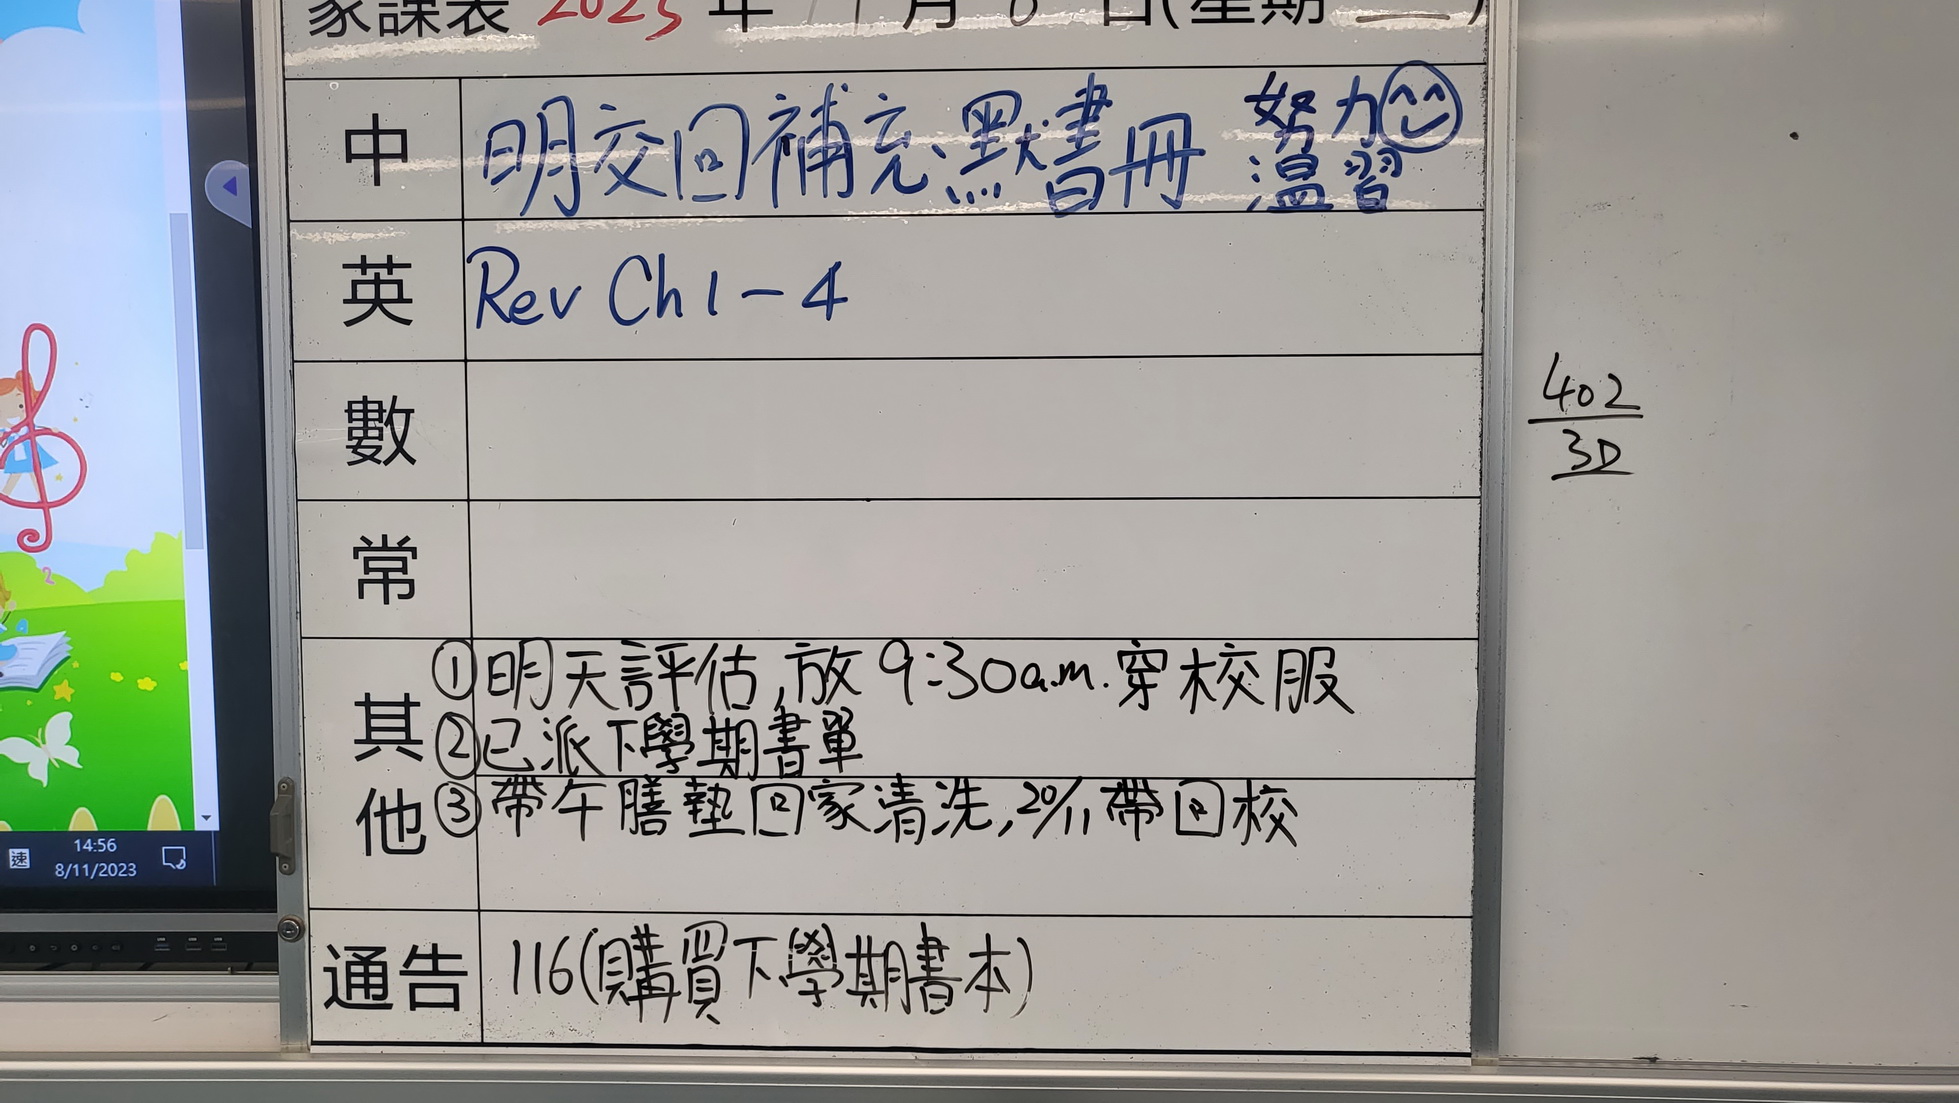 家課表 2023 年 11 月 8 日(星期 三)
中 明交回補充默書冊 努力
溫習
英 Rev Ch 1 - 4
數
常
其他
①明天評估,放9:30a.m.穿校服
②已派下學期書單
③帶午膳墊回家清洗,20/11帶回校
通告 116(購買下學期書本)
402
3D
速
14:56
8/11/2023